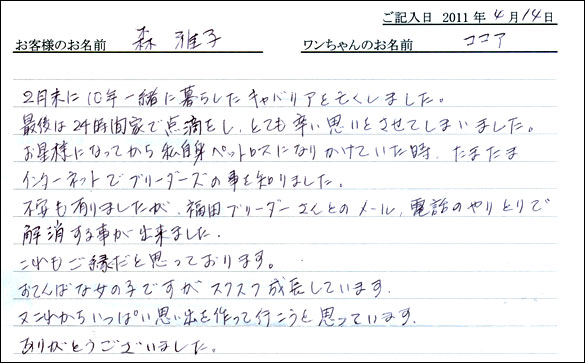 ご記入日 2011年4月14日
お客様のお名前 森 雅子 ワンちゃんのお名前 ココア
2月末に10年一緒に暮らしたキャバリアを亡くしました。
最後は24時間家で点滴をし、とても辛い思いをさせてしまいました。
お星様になってから私自身ペットロスになりかけていた時、たまたま
インターネットでブリーダーズの事を知りました。
不安も有りましたが、福田ブリーダーさんとのメール、電話のやりとりで
解消する事が出来ました.
これもご縁だと思っております。
おてんばな女の子ですがスクスク成長しています.
これからいっぱい思い出を作って行こうと思っています.
ありがとうございました。